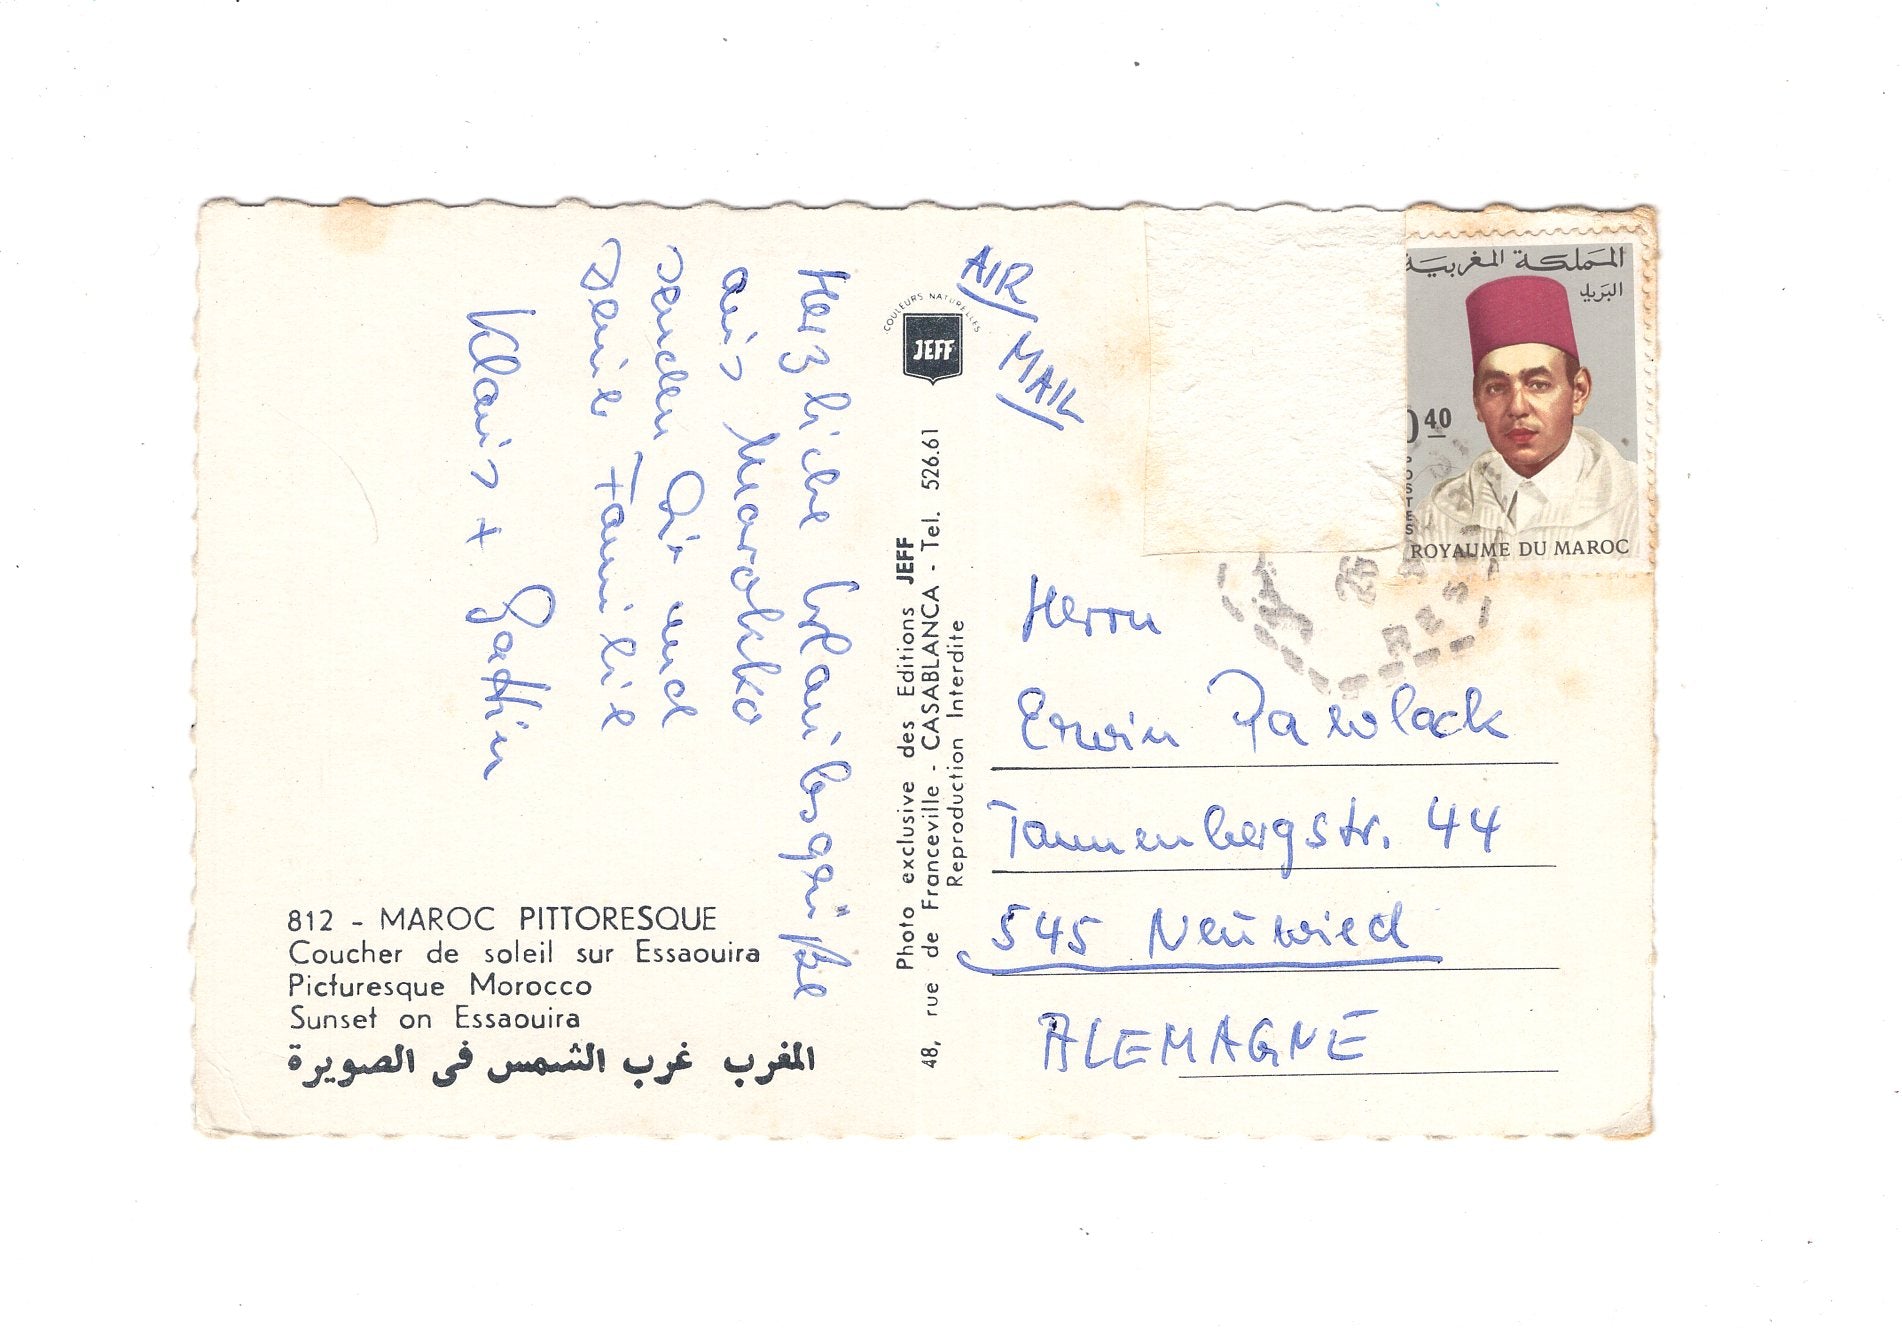 Herzliche Urlaubsgrüße
aus Marokko
senden Dir und
Deine Familie
Klaus + Gattin
812 - MAROC PITTORESQUE
Coucher de soleil sur Essaouira
Picturesque Morocco
Sunset on Essaouira
المغرب غرب الشمس فى الصويرة
COULEURS NATURELLES
JEFF
Photo exclusive des Editions JEFF
48, rue de Franceville - CASABLANCA - Tel. 526.61
Reproduction Interdite
AIR
MAIL
المملكة المغربية
البريد
0 40
POSTES
ROYAUME DU MAROC
Herrn
Erwin Pawlack
Tannenbergstr. 44
545 Neuwied
ALEMAGNE